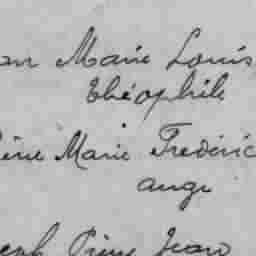 an Marie Louis
théophile
ène Marie Frédéric
ange
eph Pierre Jean